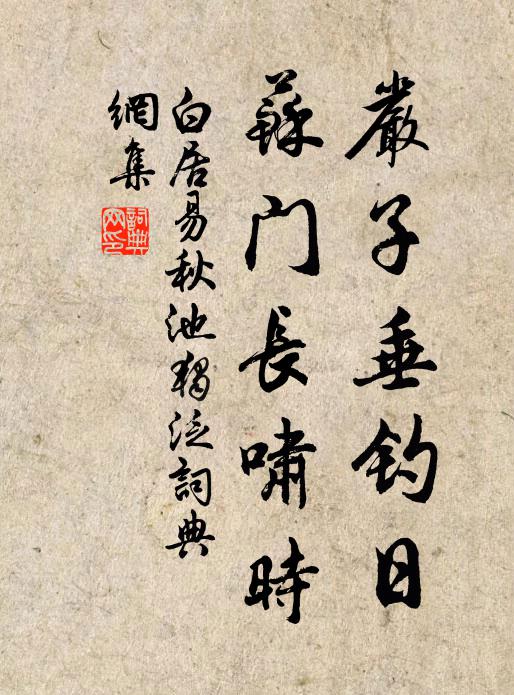 嚴子垂釣日
蘇門長嘯時
白居易秋池獨泛詞典
網集
詞典
网印